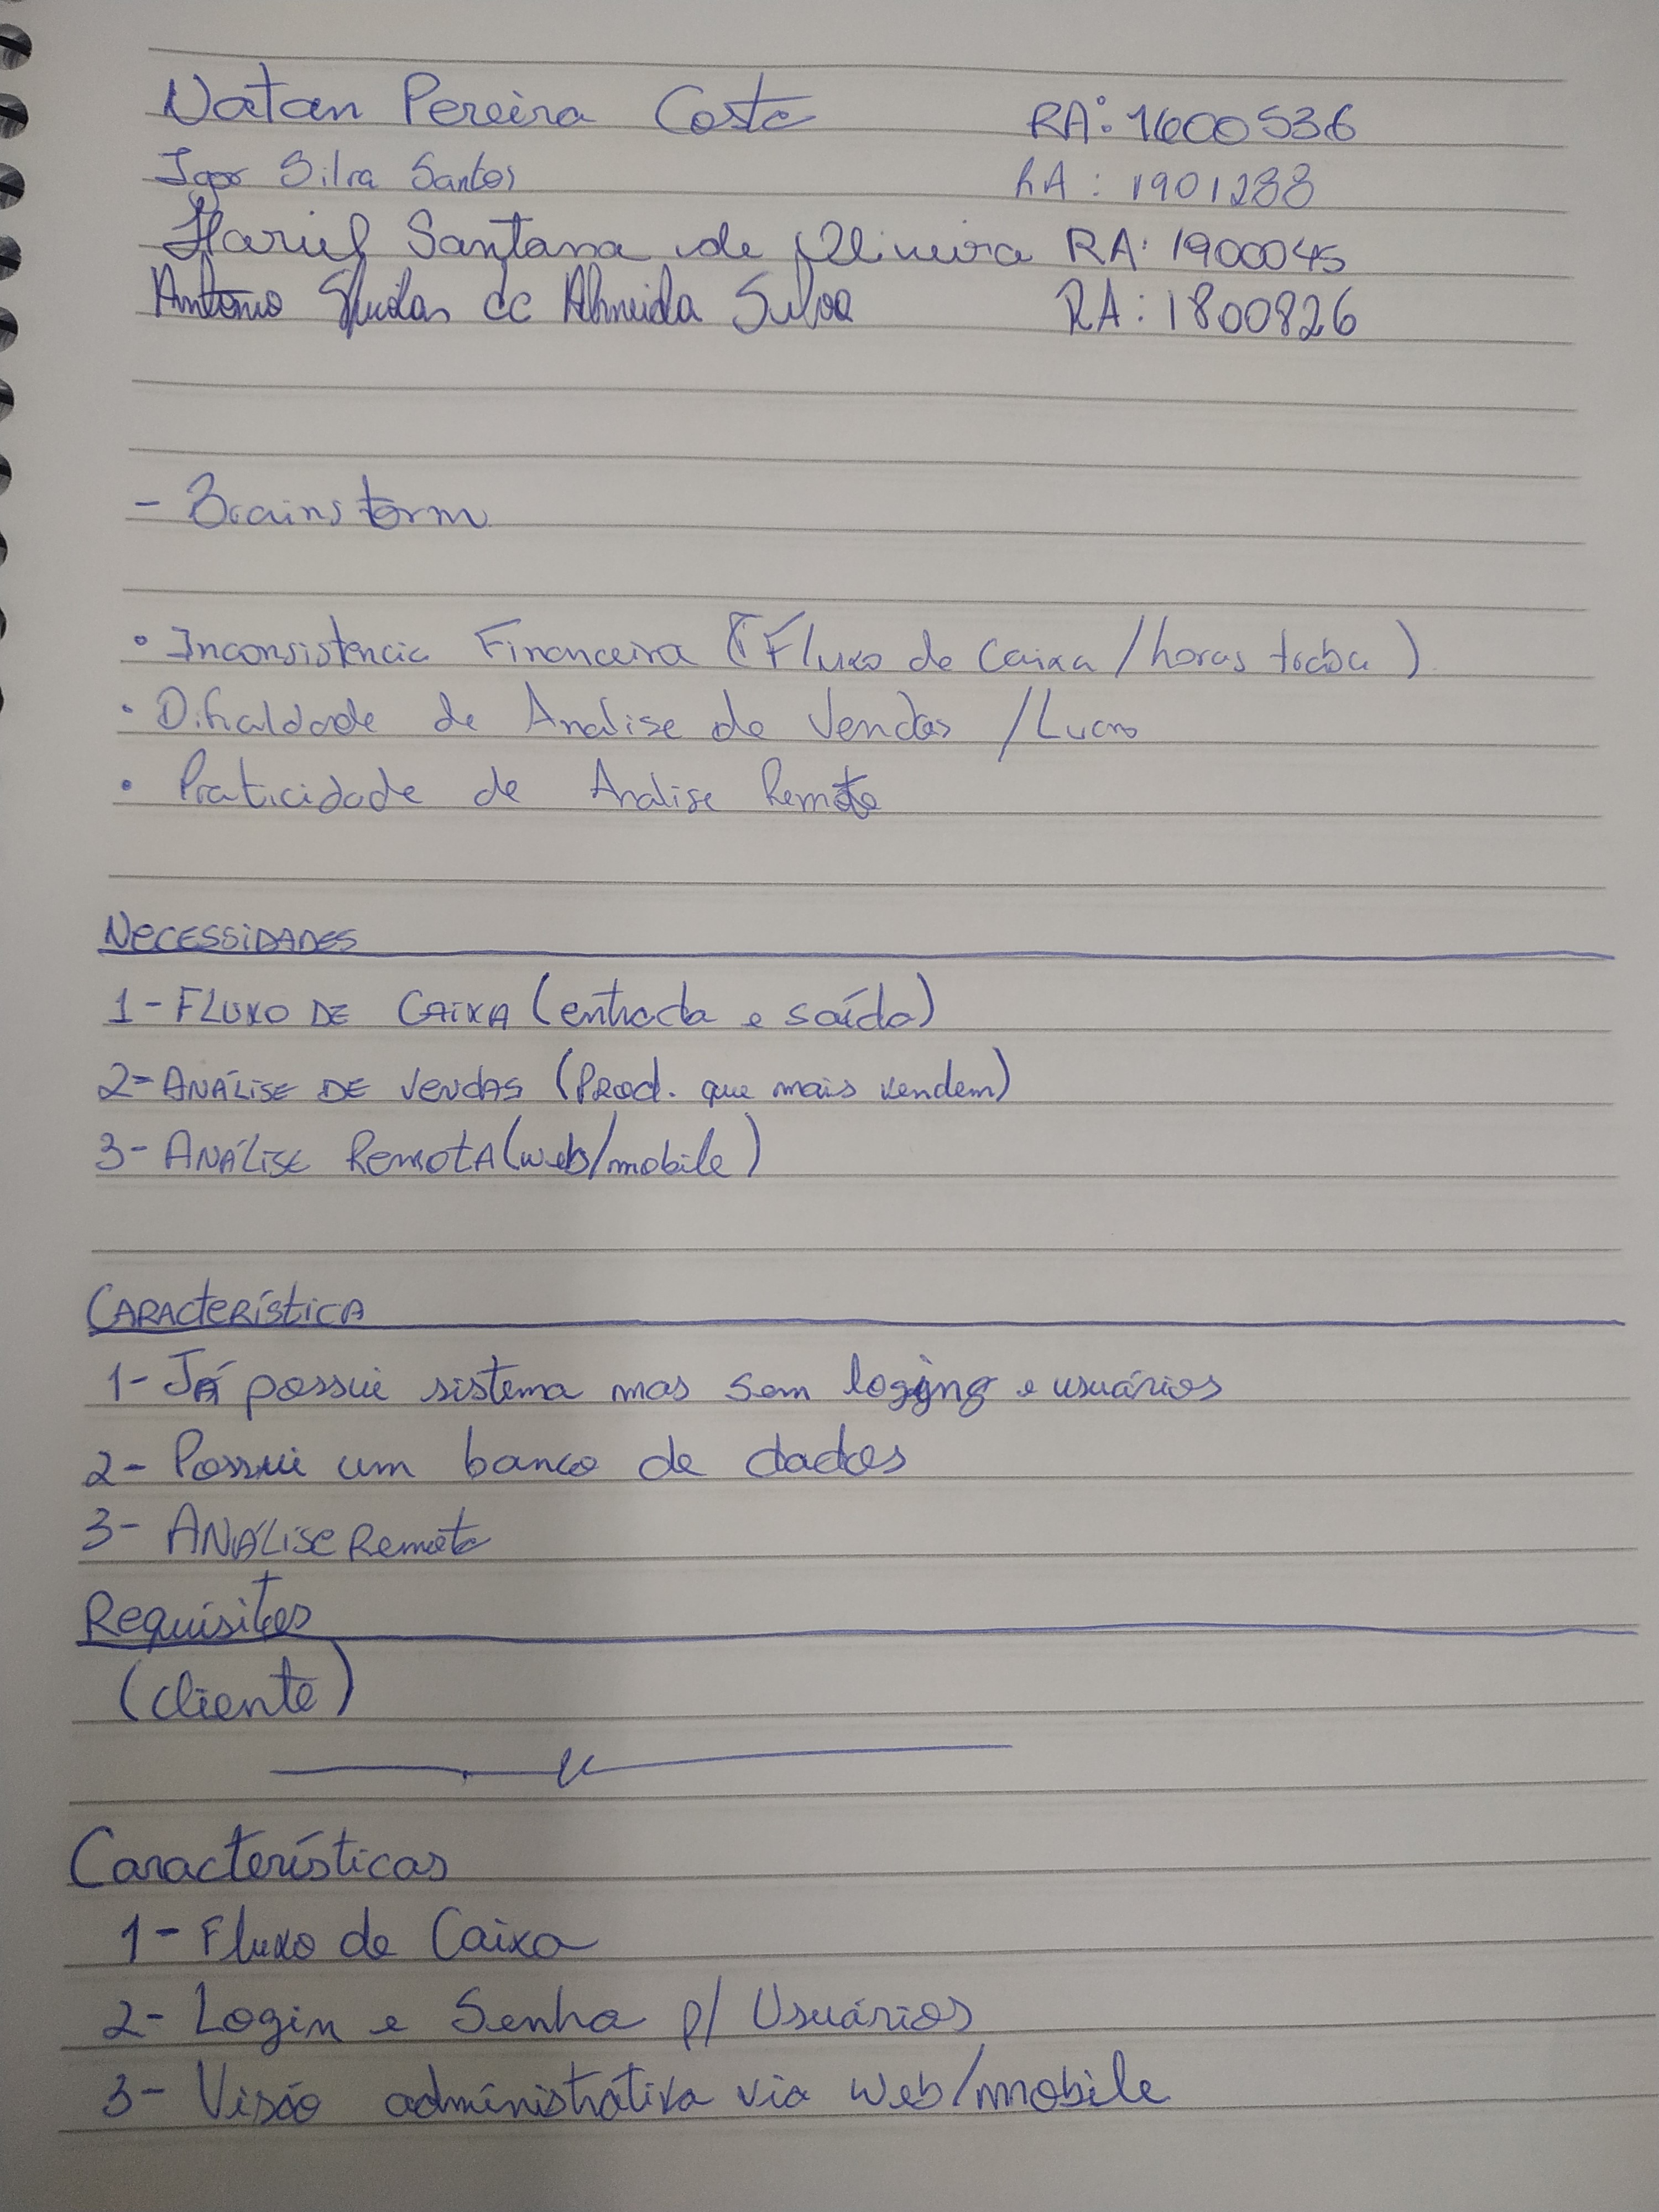 Natan Pereira Costa RA: 1600536
Igor Silva Santos RA: 1901233
Santana de Oliveira RA: 1900045
Antonio de Almeida Silva RA: 1800826
- Brainstorm
• Inconsistencia Financeira (Fluxo de Caixa / horas traba)
• Dificaldade de Análise de Vendas / Lucro
• Praticidade de Analise Remota
NECESSIDADES
1 - FLUXO DE CAIXA (entrada e saída)
2 - ANÁLISE DE VENDAS (PROD. que mais vendem)
3 - ANÁLISE REMOTA (web/mobile)
CARACTERÍSTICA
1 - JÁ possui sistema mas sem e usuários
2 - Possui um banco de dados
3 - ANÁLISE Remota
Requisitos
(cliente)
Características
1 - Fluxo de Caixa
2 - Login e Senha p/ Usuários
3 - Visão administrativa via web/mobile